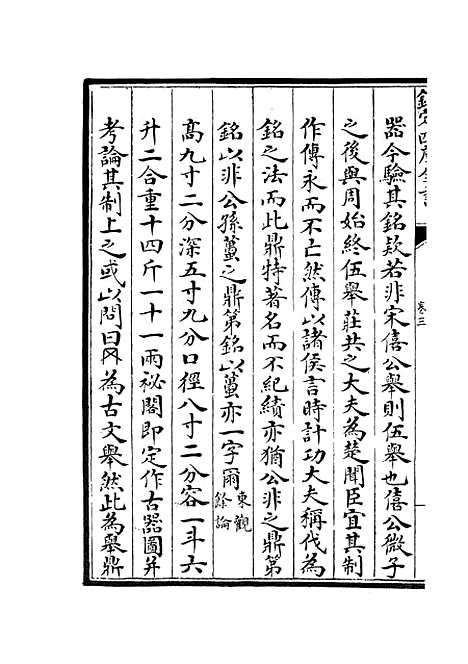 欽定四庫全書
卷三
器今驗其銘欵若非宋僖公舉則伍舉也僖公微子
之後與周始終伍舉莊共之大夫為楚聞臣宜其制
作傳永而不亡然傳以諸侯言時計功大夫稱伐為
銘之法而此鼎特著名而不紀績亦猶公非之鼎第
銘以非公孫蠆之鼎第銘以蠆亦一字爾東觀餘論
高九寸二分深五寸九分口徑八寸二分容一斗六
升二合重十四斤一十一兩祕閣即定作古器圖并
考論其制上之或以問曰 為古文舉然此為舉鼎